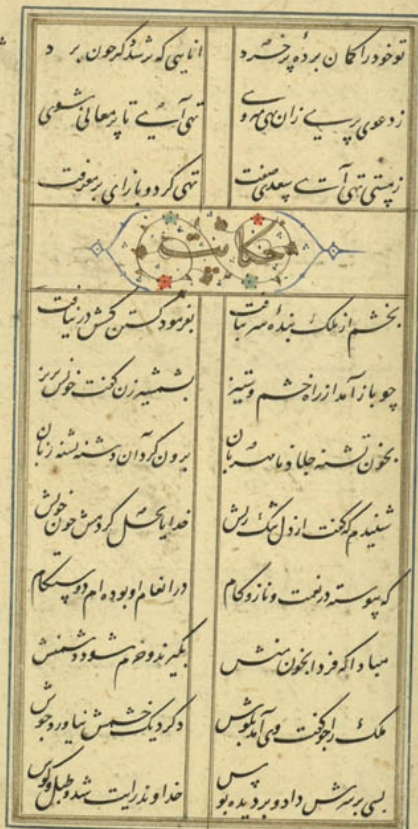 توخود را کمان بردهٔ پر خرد انایی که پر شد دکر چون برد
ز دعوی پری زان تهی می روی تهی آی تا پر معانی شوی
ز هستی تهی آی سعدی صفت تهی کرد و باز آی پر معرفت
حکایت
بخشم از ملک بندهٔ سر بتافت بفرمود کشتن کسش در نیافت
چو باز آمد از راه خشم و ستیز بشمشیر زن کفت خونش بریز
بخون تشنه جلاد نامهربان برون کرد آن دشنه تشنه زبان
شنیدم که کفت از دل تنک ریش خدایا بحل کردمش خون خویش
که پیوسته در نعمت و ناز و کام در انعام او بوده ام دوستکام
مبادا که فردا بخون منش بکیرند و خرم شود دشمنش
ملک را چو کفت وی آمد بکوش دکر دیک خشمش نیاورد جوش
بسی بر سرش داد و بر دیده بوس خداوند رایت شد و طبل و کوس